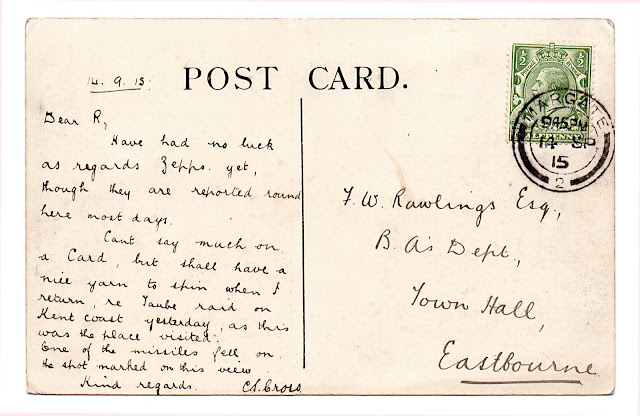 14.9.15.
POST CARD.
Dear R,
Have had no luck
as regards Zepps. yet,
though they are reported round
here most days.
Cant say much on
a Card, but shall have a
nice yarn to spin when I
return, re Taube raid on
Kent coast yesterday, as this
was the place visited.
One of the missiles fell on
the shot marked on this view
Kind regards. C.L. Cross
½ ½
MARGATE
9.45PM
14 SP
15
2
F. W. Rawlings Esq.,
B. A's Dept,
Town Hall,
Eastbourne